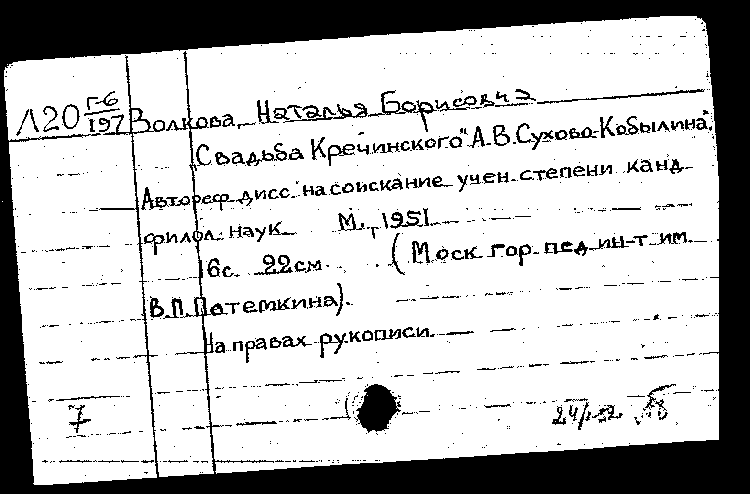 Л20 Г-6/197 Волкова, Наталья Борисовна
„Свадьба Кречинского" А.В.Сухово-Кобылина".
Автореф дисс. на соискание учен. степени канд
филол. наук М., 1951
16с. 22см. (Моск. гор. пед. ин-т им.
В.П.Потемкина).
На правах рукописи.
7